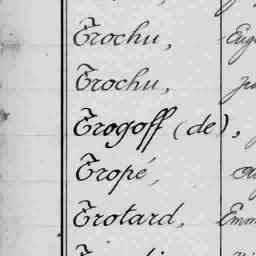 Trochu, Eug
Trochu,
Trogoff (de),
Tropé,
Trotard, Emm